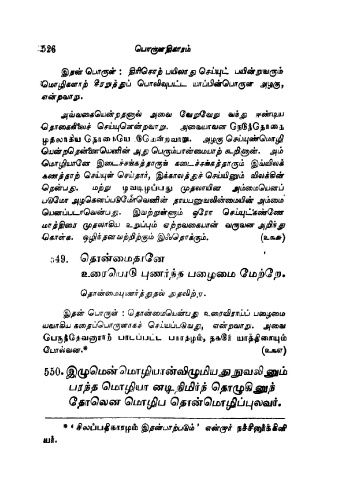 526 பொருளதிகாரம்
இதன் பொருள் : திரிசொற் பயிலாது செய்யுட் பயின்றவரும்
மொழிகளாற் சேறுத்துப் பொலிவுபட்ட யாப்பின்பொருள அழகு,
என்றவாறு.
அவ்வகையென்றதனால் அவை வேறுவேறு வந்து ஈண்டிய
தொகைநிலைச் செய்யுளென்றவாறு. அவையாவன நெடுந்தொகை
முதலாகிய தொகையெட் டுமென்றவாறு. அழகு செய்யுண்மொழி
யென்றதென்னையெனின் அது பெரும்பான்மையாற் கூறினான். அம்
மொழியானே இடைச்சங்கத்தாருங் கடைச்சங்கத்தாரும் இவ்விலக்
கணத்தாற் செய்யுள் செய்தார், இக்காலத்துச் செய்யினும் விலக்கின்
றென்பது. மற்று மூவடிமுப்பது முதலாயின அம்மையெனப்
படுமோ அழகெனப்படுமோவெனின் தாயபனுவலின்மையின் அம்மை
யெனப்படாவென்பது. இவற்றுள்ளும் ஒரோ செய்யுட்கண்ணே
மாத்திரை முதலாகிய உறுப்பும் ஏற்றவகையான் வருவன அறிந்து
கொள்க. ஒழிந்தனவற்றிற்கும் இஃதொக்கும். (உ௩௬)
549. தொன்மைதானே
உரையொடு புணர்ந்த பழைமை மேற்றே.
தொன்மையுணர்த்துதல் நுதலிற்று.
இதன் பொருள் : தொன்மையென்பது உரைவிராஅய்ப் பழைமை
யவாகிய கதைப்பொருளாகச் செய்யப்படுவது, என்றவாறு. அவை
பெருந்தேவனாராற் பாடப்பட்ட பாரதமும், தகடூர் யாத்திரையும்
போல்வன.* (உ௩௭)
550. இழுமென்மொழியான்விழுமியது நுவலினும்
பரந்த மொழியா னடிநிமிர்ந் தொழுகினுந்
தோலென மொழிப தொன்மொழிப்புலவர்.
* ‘ சிலப்பதிகாரமும் இதன்பாற்படும் ’ என்றார் நச்சினார்க்கினி
யர்.